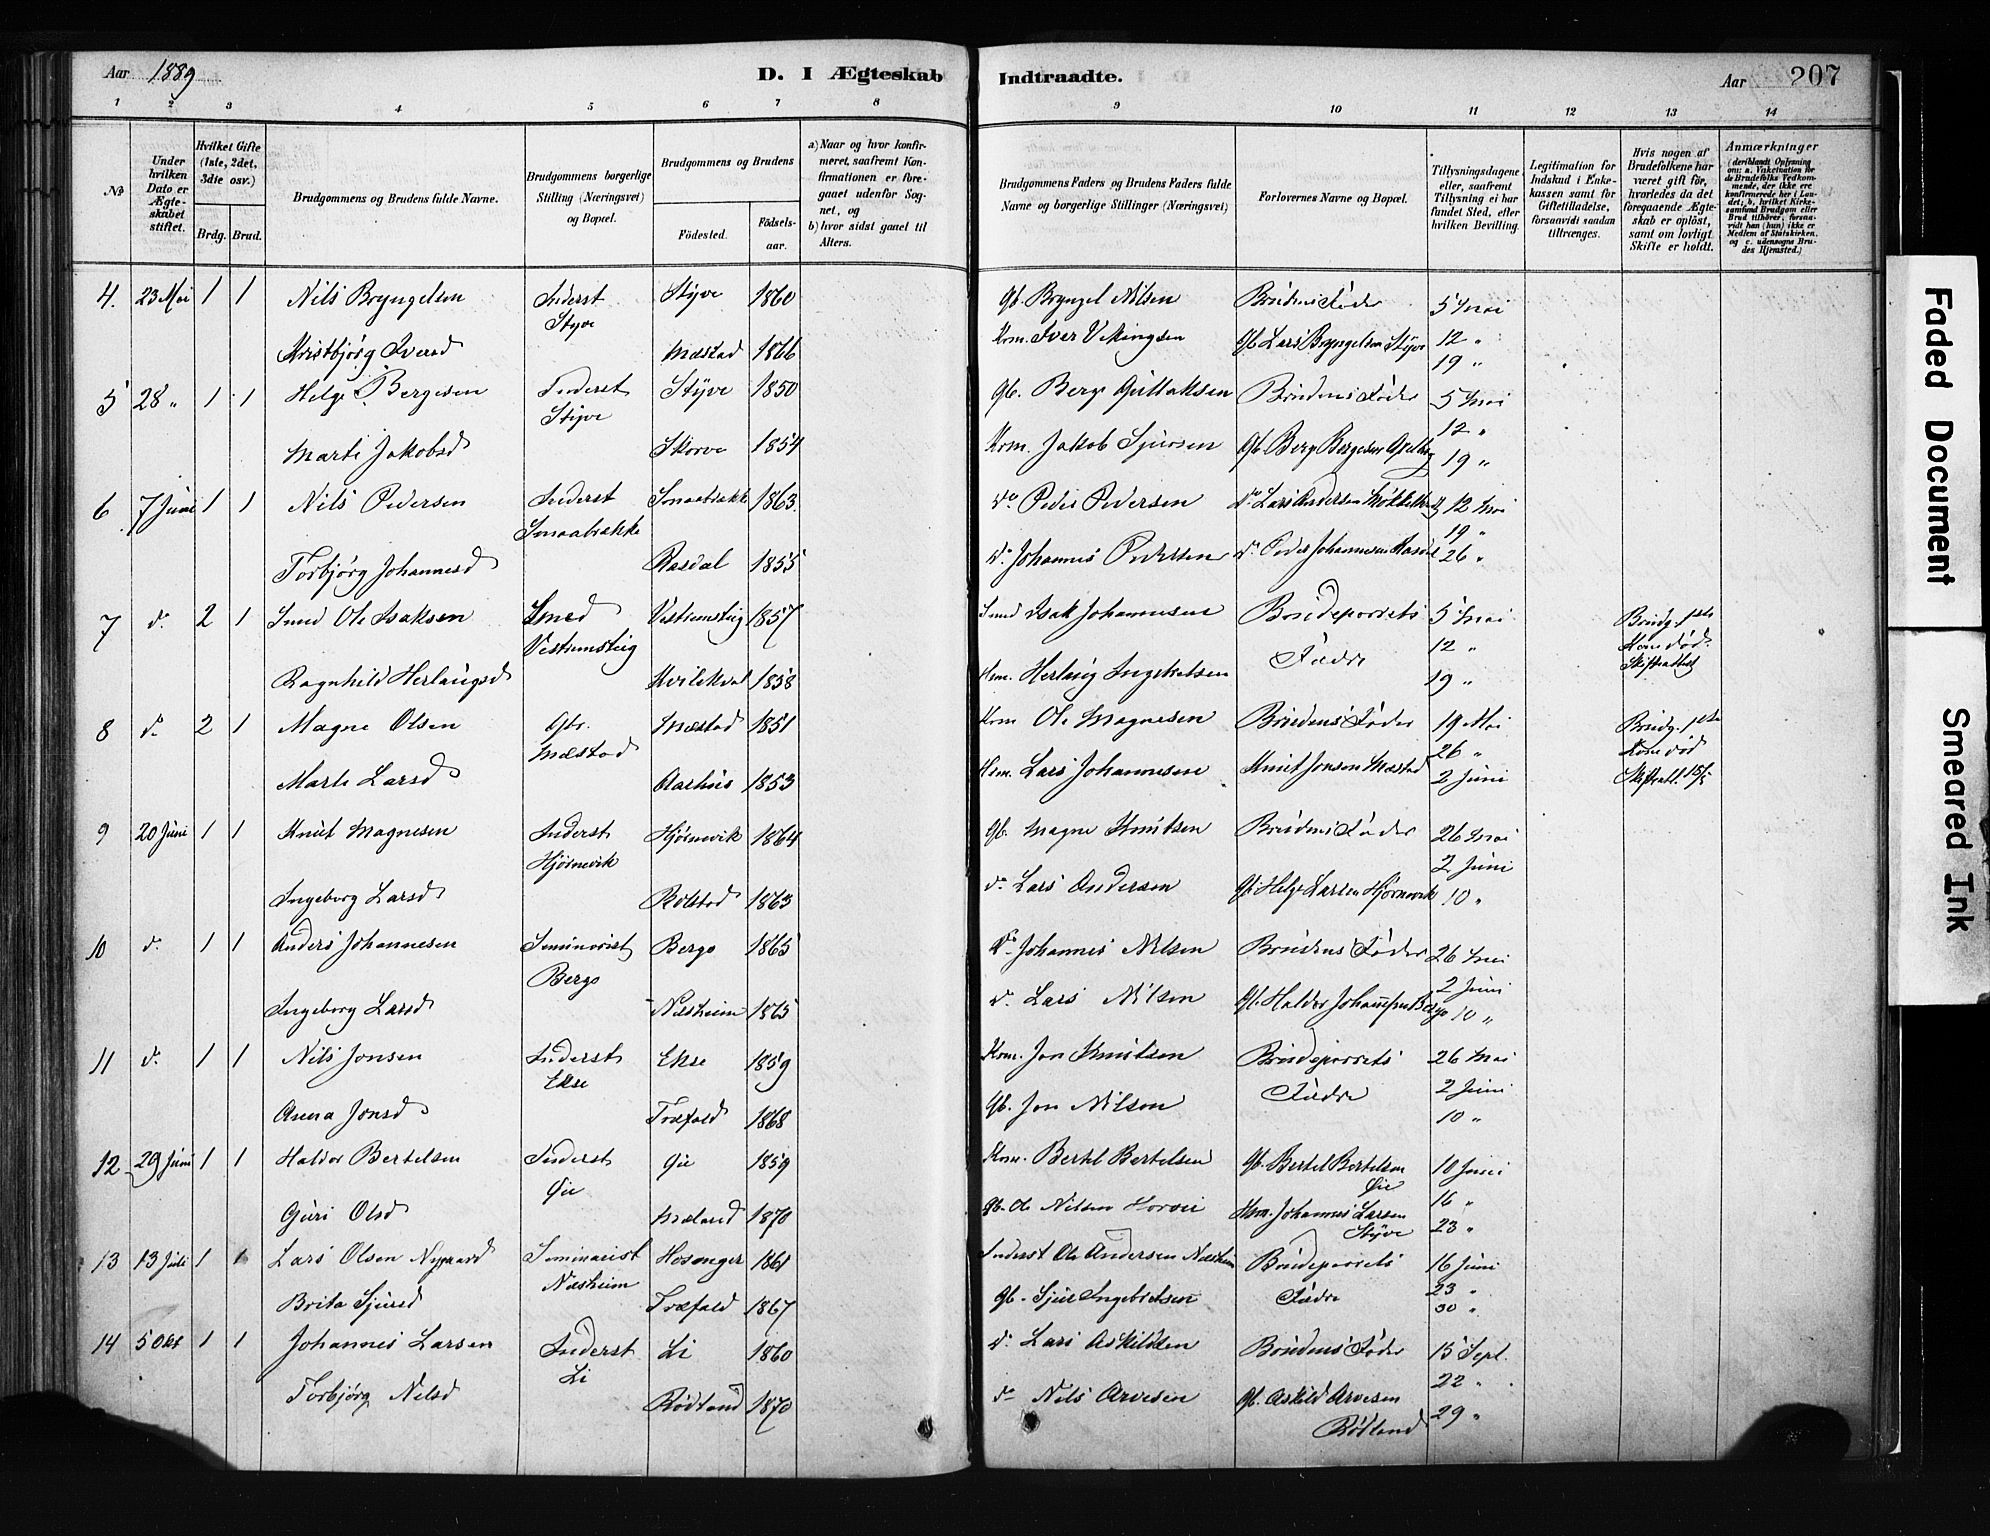 Aar 1889
D. I Ægteskab Indtraadte.
Aar 207
1 2 3 4 5 6 7 8 9 10 11 12 13 14
No
Under hvilken Dato er Ægteskabet stiftet.
Hvilket Gifte (1ste, 2det, 3die osv.)
Brdg. Brud.
Brudgommens og Brudens fulde Navne.
Brudgommens borgerlige Stilling (Næringsvei) og Bopæl.
Brudgommens og Brudens
Födested. Födselsaar.
a) Naar og hvor konfirmeret, saafremt Konfirmationen er foregaaet udenfor Sognet, og
b) hvor sidst ganet til Alters.
Brudgommens Faders og Brudens Faders fulde Navne og borgerlige Stillinger (Næringsvei)
Forlovernes Navne og Bopæl.
Tillysningsdagene eller, saafremt Tillysning ei har fundet Sted, efter hvilken Bevilling.
Legitimation for Indskud i Enkekassen samt for Giftetilladelse, forsaavidt saadan tiltrænges.
Hvis nogen af Brudefolkene har været gift før, hvorledes da det foregaaende Ægteskab er opløst, samt om lovligt Skifte er holdt.
Anmærkninger
(deriblandt Oplysning om: a. Vakcination for de Brudefolks Vedkommende, der ikke ere konfirmerede her i Landet; b. hvilket Kirkesamfund Brudgom eller Brud tilhører, forsaavidt han (hun) ikke er Medlem af Statskirken, og c. udensogns Brudes Hjemsted.)
4. 23 Mai 1 1 Nils Bryngelsen Inderst Styve Styve 1860 Gb. Bryngel Nilsen Brudens Fader 5 Mai
Kristbjørg Iversd Mæstad 1866 Hm. Iver Vikingsen Gb Lars Bryngelsen Styve 12 "
19 "
5 28 " 1 1 Helge Bergesen Inderst Styve Styve 1850 Gb. Berge Guttaksen Brudens Fader 5 Mai
12 "
Marte Jakobsd Skorve 1854 Hm. Jakob Sjursen Gb Berge Bergesen 19 "
6 7 Juni 1 1 Nils Pedersen Inderst Smaabrække Smaabrække 1863 do Peder Pedersen do Lars Andersen 12 Mai
19 "
Torbjørg Johannesd Rasdal 1855 do Johannes Pedersen do Peder Johannesen Rasdal 26 "
7 do 2 1 Smed Ole Isaksen Smed 1857 Smed Isak Johannesen Brudeparrets Fædre 5 Mai Brudg. 1ste Kone død.
12 "
Ragnhild Herlaugsd Kvilekval 1858 Hm. Herlaug 19 "
8 do 2 1 Magne Olsen Gbr. Mæstad Mæstad 1851 Hm Ole Magnesen Brudens Fader 19 Mai Brudg. 1ste Kone død
26 "
Marte Larsd Aarhus 1853 Hm. Lars Johannesen Knut Jonsen Mæstad 2 Juni Skifteatt. 15/5
9 20 Juni 1 1 Knut Magnesen Inderst Hjørnevik Hjørnevik 1864 Gb. Magne Knutsen Brudens Fader 26 Mai
2 Juni
Ingeborg Larsd Rolstad 1863 do Lars Andersen Gb Helge Larsen Hjørnevik 10 "
10 do 1 1 Anders Johannesen Seminarist Bergo Bergo 1865 do Johannes Nilsen Brudens Fader 26 Mai
2 Juni
Ingeborg Larsd Næsheim 1865 do Lars Nilsen Gb. Haldor Johannesen Bergo 10 "
11 do 1 1 Nils Jonsen Inderst Ekse Ekse 1859 Hm. Jon Knutsen Brudeparrets Fædre 26 Mai
2 Juni
Anna Jonsd Træfald 1868 Gb. Jon Nilsen 10 "
12 29 Juni 1 1 Haldor Bertelsen Inderst Øie Øie 1859 Hm. Bertel Bertelsen Gb. Bertel Bertelsen Øie 10 Juni
16 "
Guri Olsd Mæland 1870 Gb. Ole Nilsen Gbm. Johannes Larsen Styve 23 "
13 13 Juli 1 1 Lars Olsen Nygaard Seminarist Næsheim Hosanger 1861 Inderst Ole Andersen Næsheim Brudeparrets Fædre 16 Juni
23 "
Brita Sjursd Træfald 1867 Gb. Sjur Ingebretsen 30 "
14 5 Okt 1 1 Johannes Larsen Inderst Li Li 1860 do Lars Askildsen Brudens Fader 15 Sept.
22 "
Torbjørg Nilsd Rødland 1870 do Nils Arvesen Gb. Askild Arvesen Rødland 29 "
Faded Document
Smeared Ink